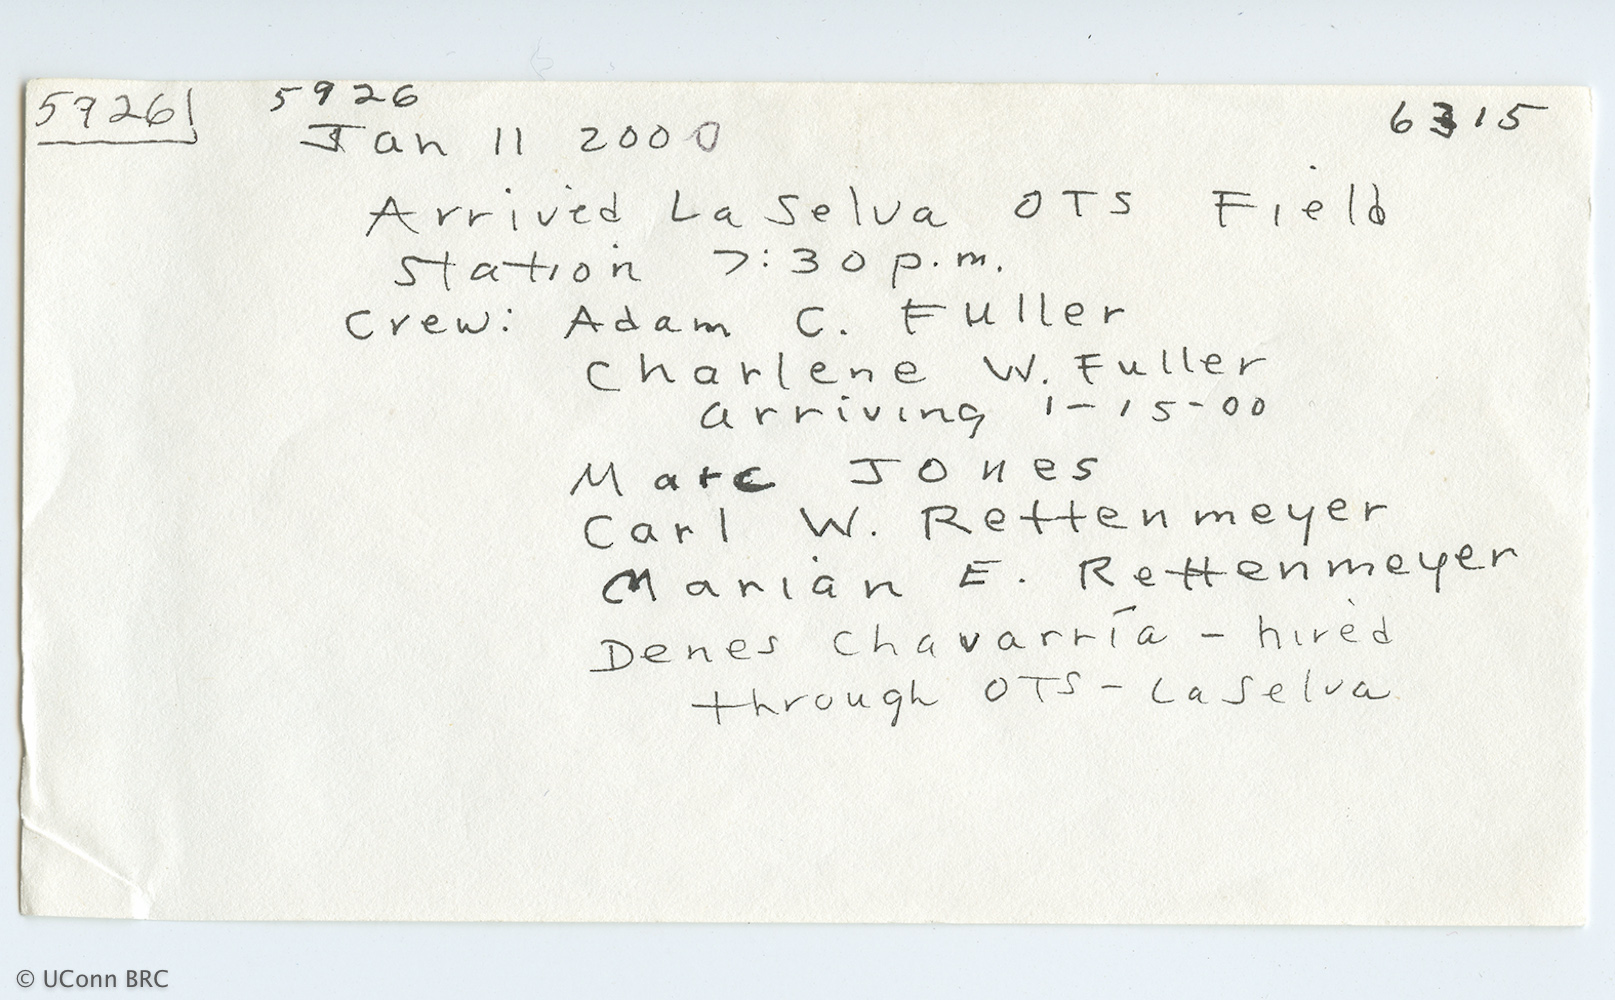 5926
5926
6315
Jan 11 2000
Arrived La Selva OTS Field
station 7:30 p.m.
Crew: Adam C. Fuller
Charlene W. Fuller
arriving 1-15-00
Marc Jones
Carl W. Rettenmeyer
Marian E. Rettenmeyer
Denes Chavarría - hired
through OTS - La Selva
© UConn BRC